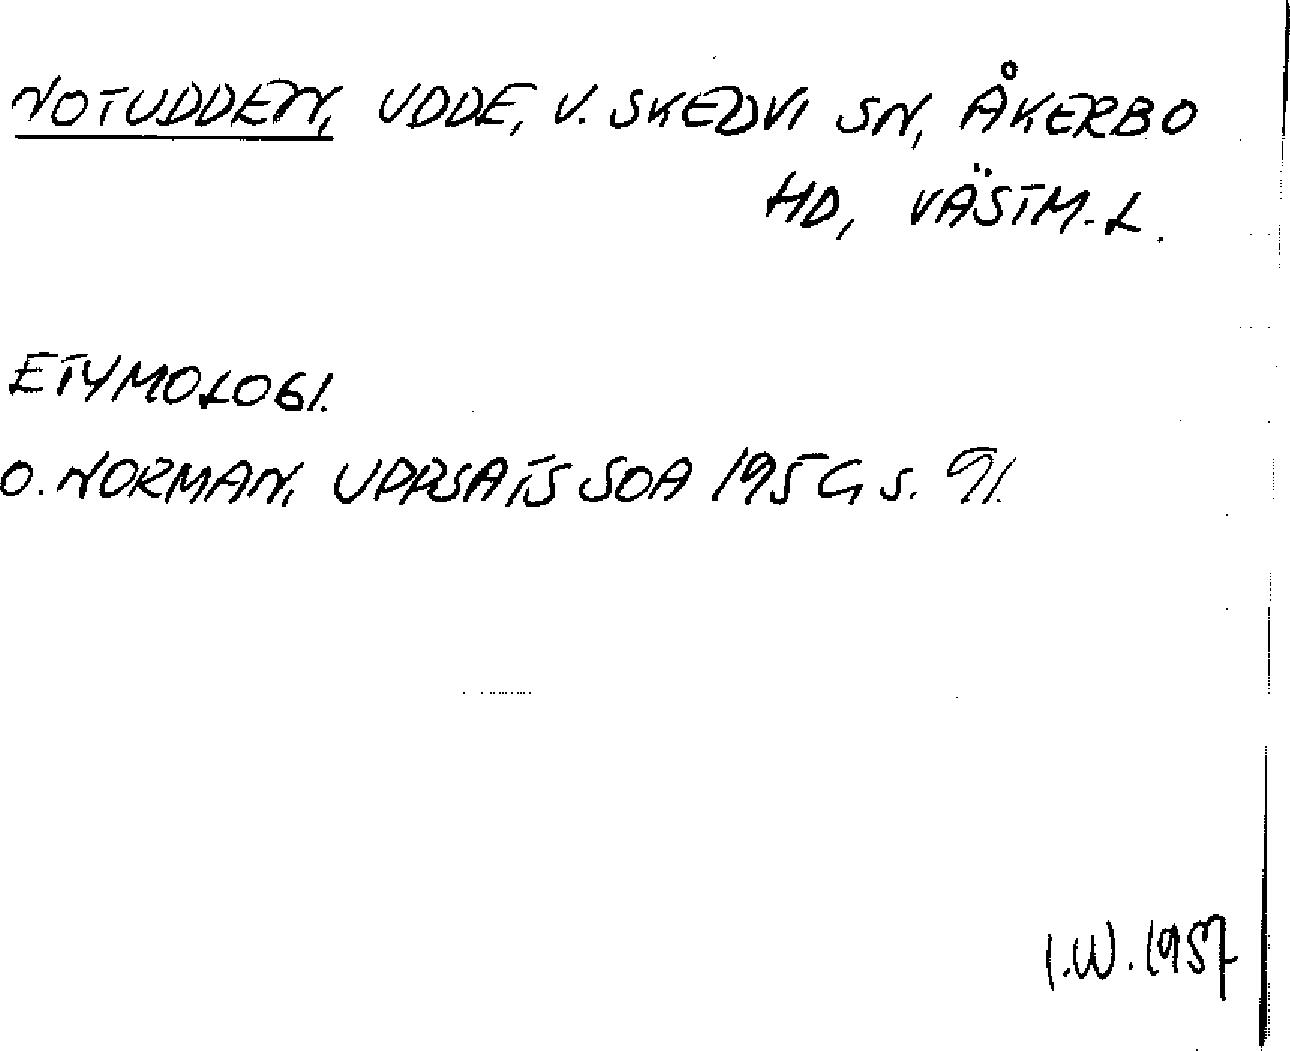 NOTUDDEN, UDDE, V. SKEDVI SN, ÅKERBO
HD, VÄSTM. L.
ETYMOLOGI.
O. NORMAN, UPPSATS SOA 1956 s. 91.
I.W. 1957